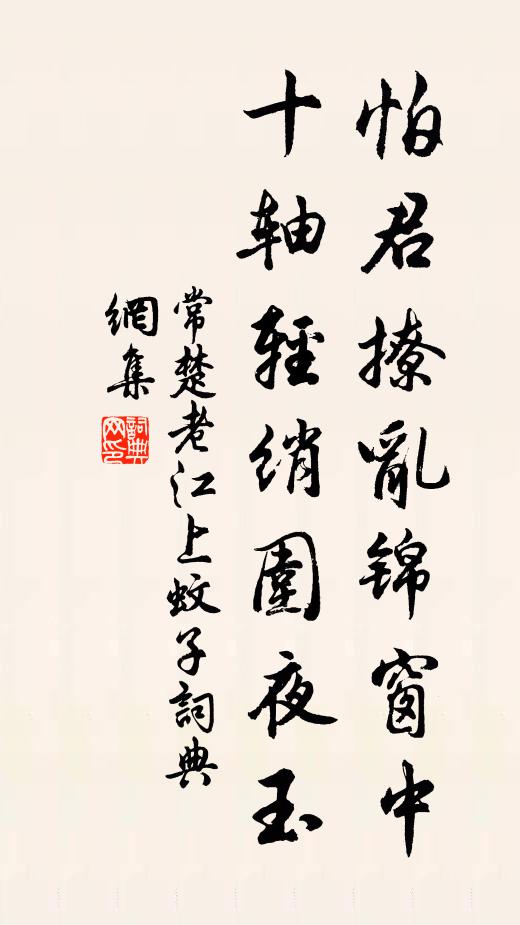 怕君撩亂錦窗中
十軸輕綃圍夜玉
常楚老江上蚊子詞典
網集
詞典
网印